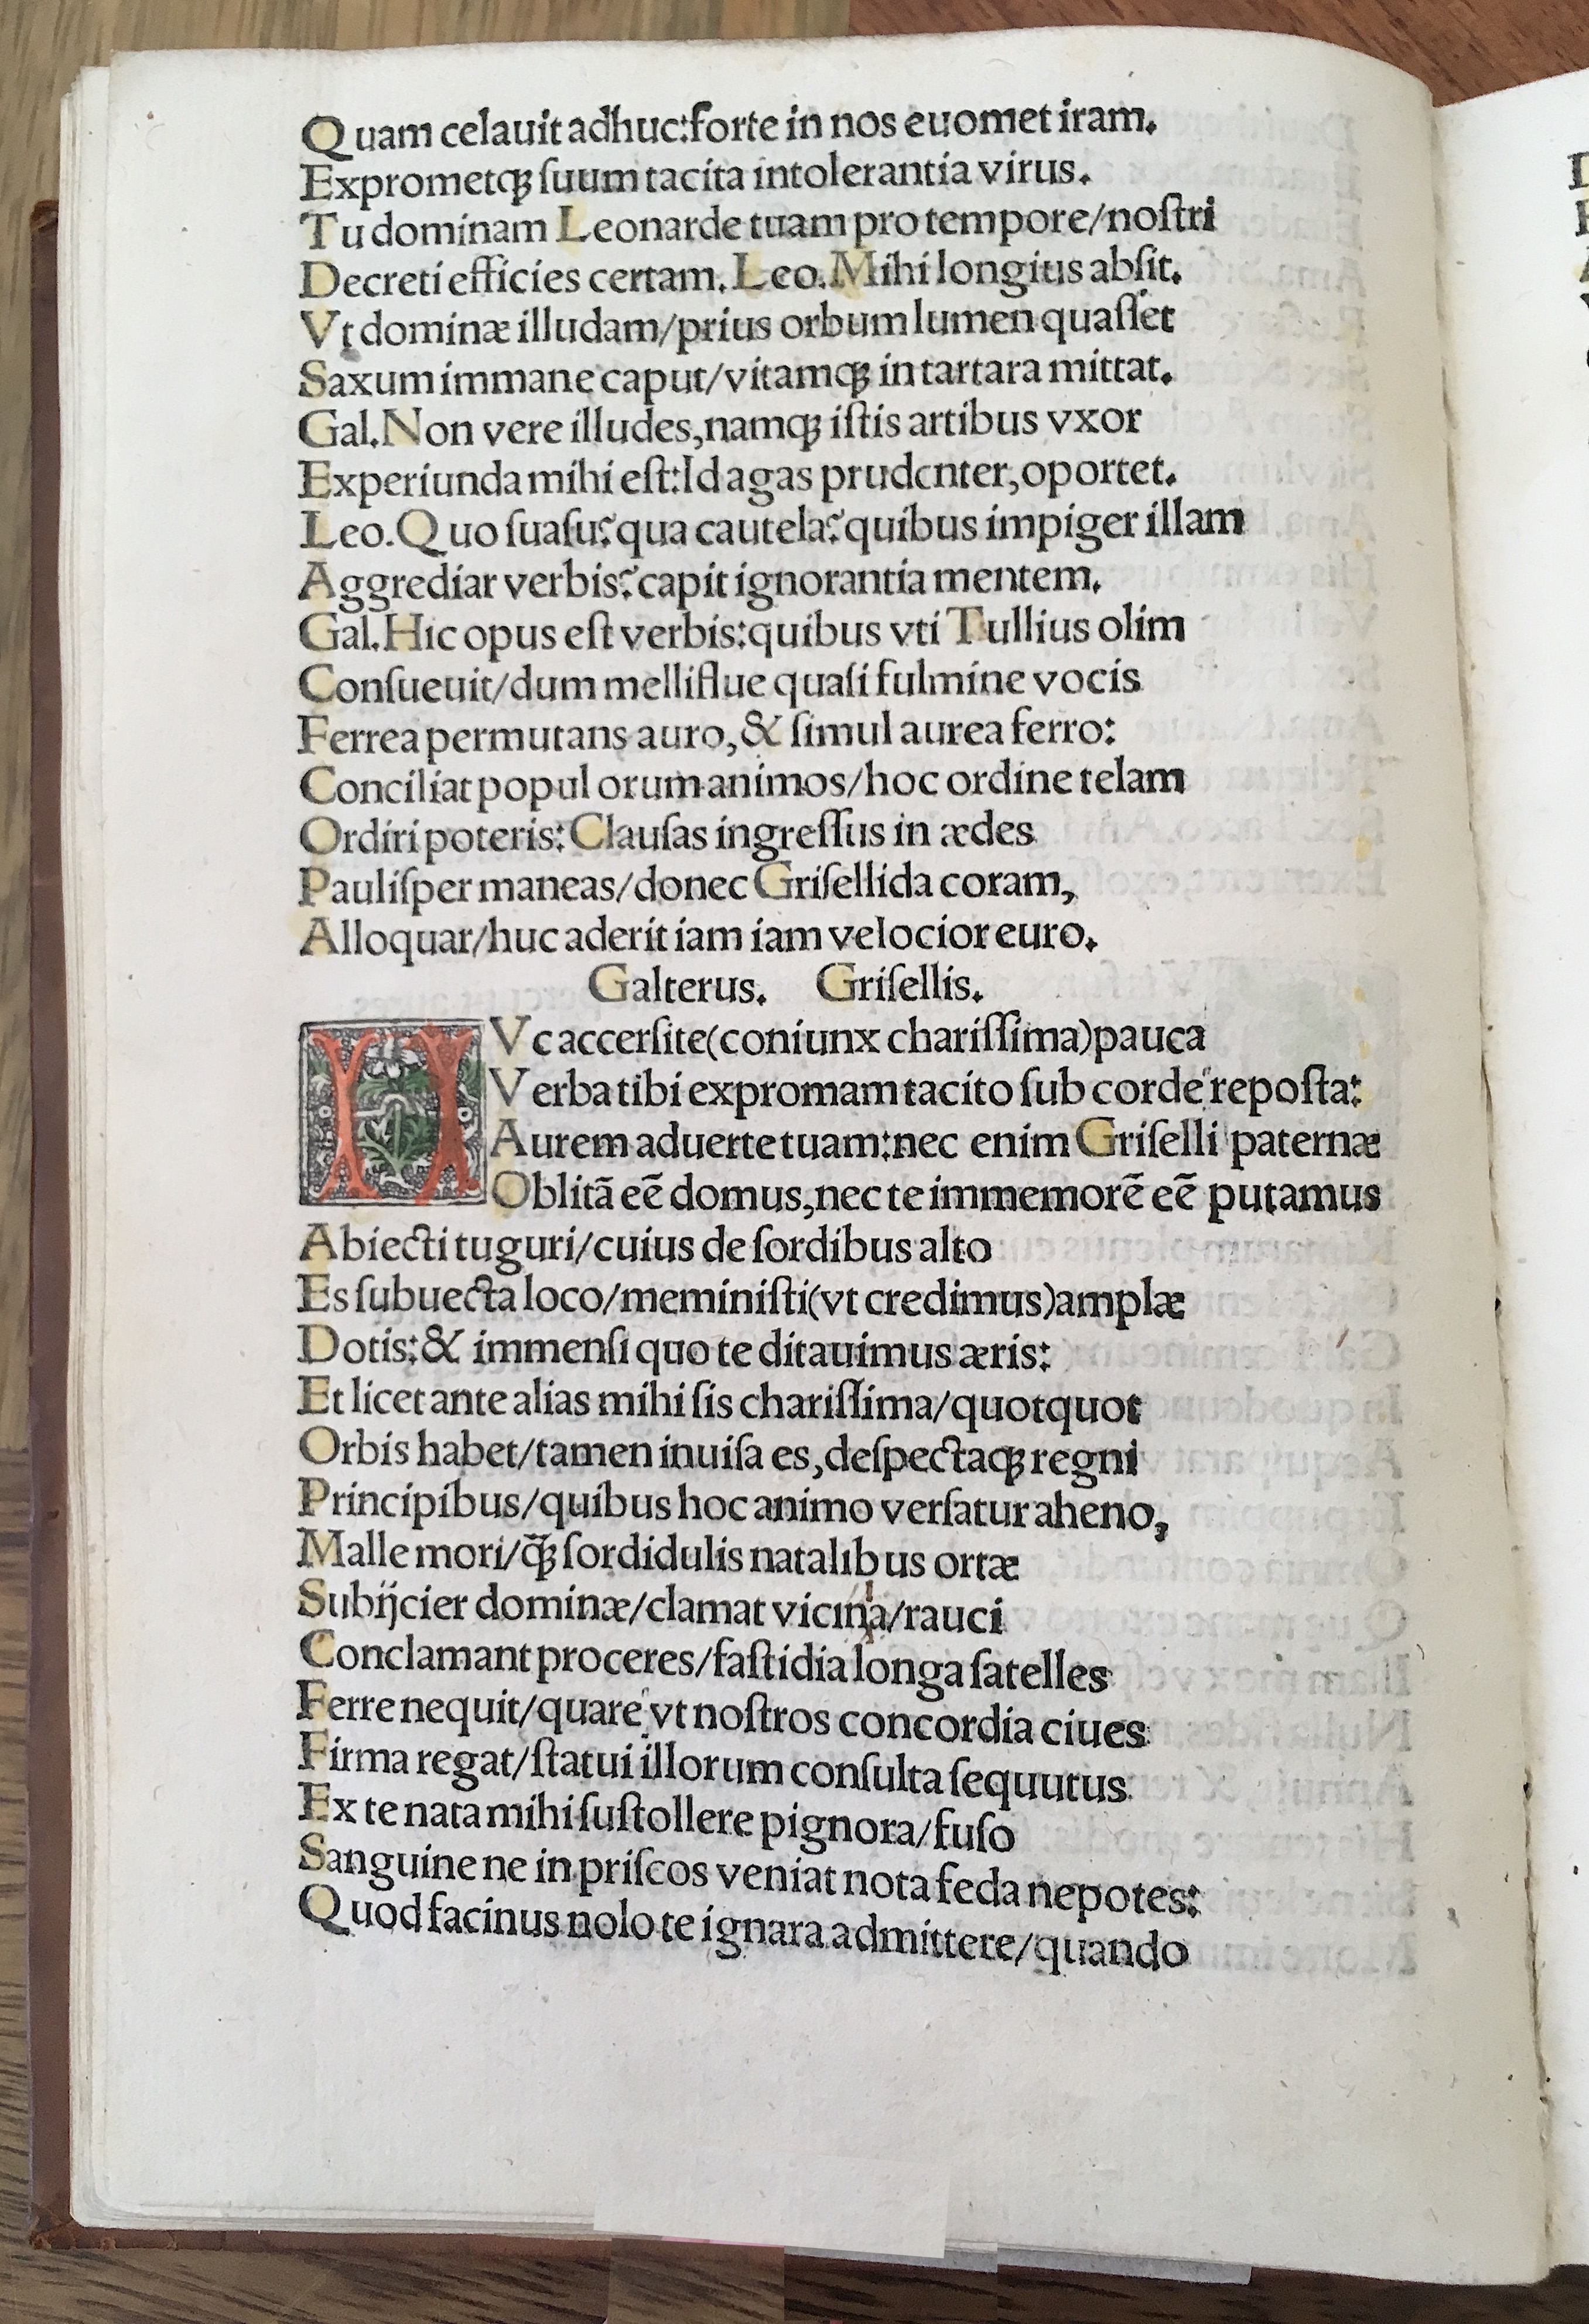 Quam celauit adhuc:forte in nos euomet iram.
Exprometqꝫ ſuum tacita intolerantia virus.
Tu dominam Leonarde tuam pro tempore/noſtri
Decreti efficies certam. Leo. Mihi longius abſit.
Vt dominæ illudam/prius orbum lumen quaſſet
Saxum immane caput/vitamqꝫ in tartara mittat.
Gal. Non vere illudes, namqꝫ iſtis artibus vxor
Experiunda mihi eſt:Id agas prudenter, oportet.
Leo. Quo ſuaſu? qua cautela? quibus impiger illam
Aggrediar verbis? capit ignorantia mentem.
Gal. Hic opus eſt verbis:quibus vti Tullius olim
Conſueuit/dum melliflue quaſi fulmine vocis
Ferrea permutans auro, & ſimul aurea ferro:
Conciliat popul orum animos/hoc ordine telam
Ordiri poteris: Clauſas ingreſſus in ædes
Pauliſper maneas/donec Griſellida coram,
Alloquar/huc aderit iam iam velocior euro.
Galterus. Griſellis.
HVc accerſite(coniunx chariſſima)pauca
Verba tibi expromam tacito ſub corde repoſta:
Aurem aduerte tuam:nec enim Griſelli paternæ
Oblitā eē domus, nec te immemorē eē putamus
Abiecti tuguri/cuius de ſordibus alto
Es ſubuecta loco/meminiſti(vt credimus)amplæ
Dotis:& immenſi quo te ditauimus æris:
Et licet ante alias mihi ſis chariſſima/quotquot
Orbis habet/tamen inuiſa es, deſpectaqꝫ regni
Principibus/quibus hoc animo verſatur aheno,
Malle mori/q̄ꝫ ſordidulis natalibus ortæ
Subijcier dominæ/clamat vicina/rauci
Conclamant proceres/faſtidia longa ſatelles
Ferre nequit/quare vt noſtros concordia ciues
Firma regat/ſtatui illorum conſulta ſequutus
Ex te nata mihi ſuſtollere pignora/fuſo
Sanguine ne in priſcos veniat nota feda nepotes:
Quod facinus nolo te ignara admittere/quando